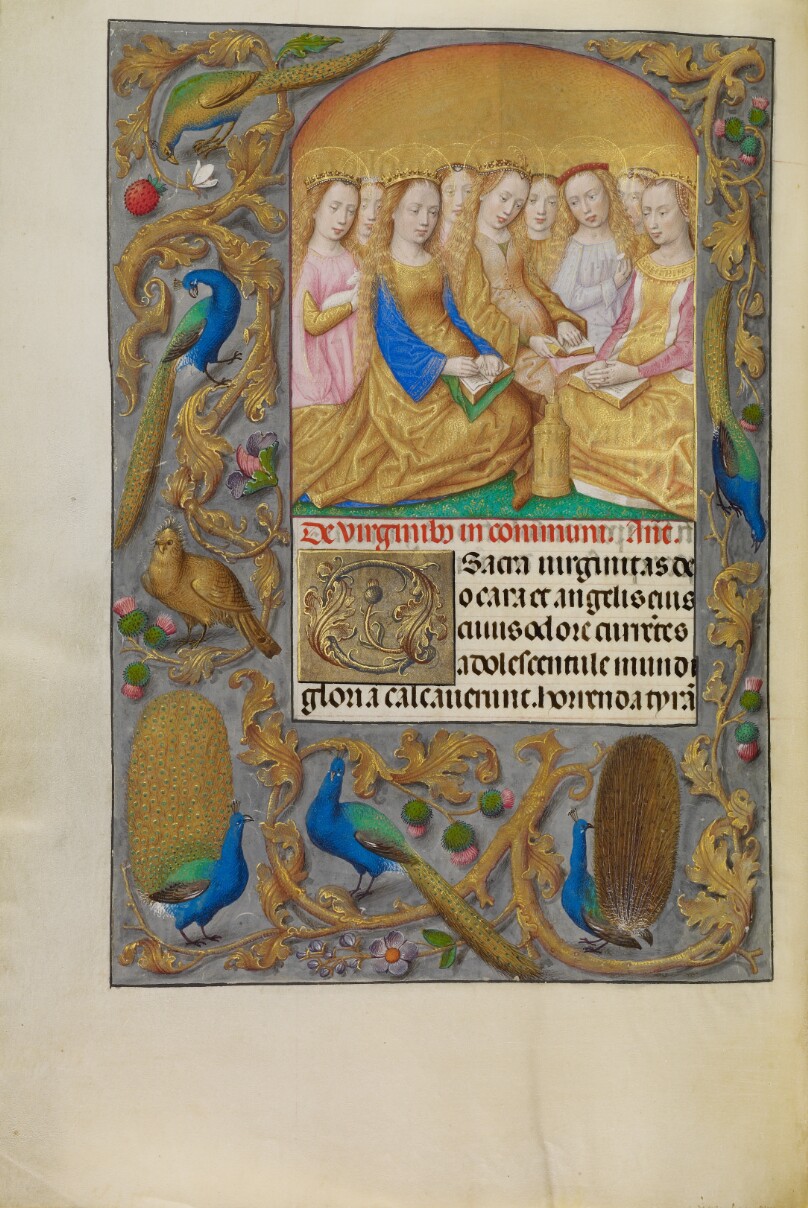 De virginibꝰ in communi. Añt.
O Sacra uirginitas de
o cara et angelis eius
cuius odore currētes
adolescentule mundi
gloria calcauerunt. horrenda tyrā